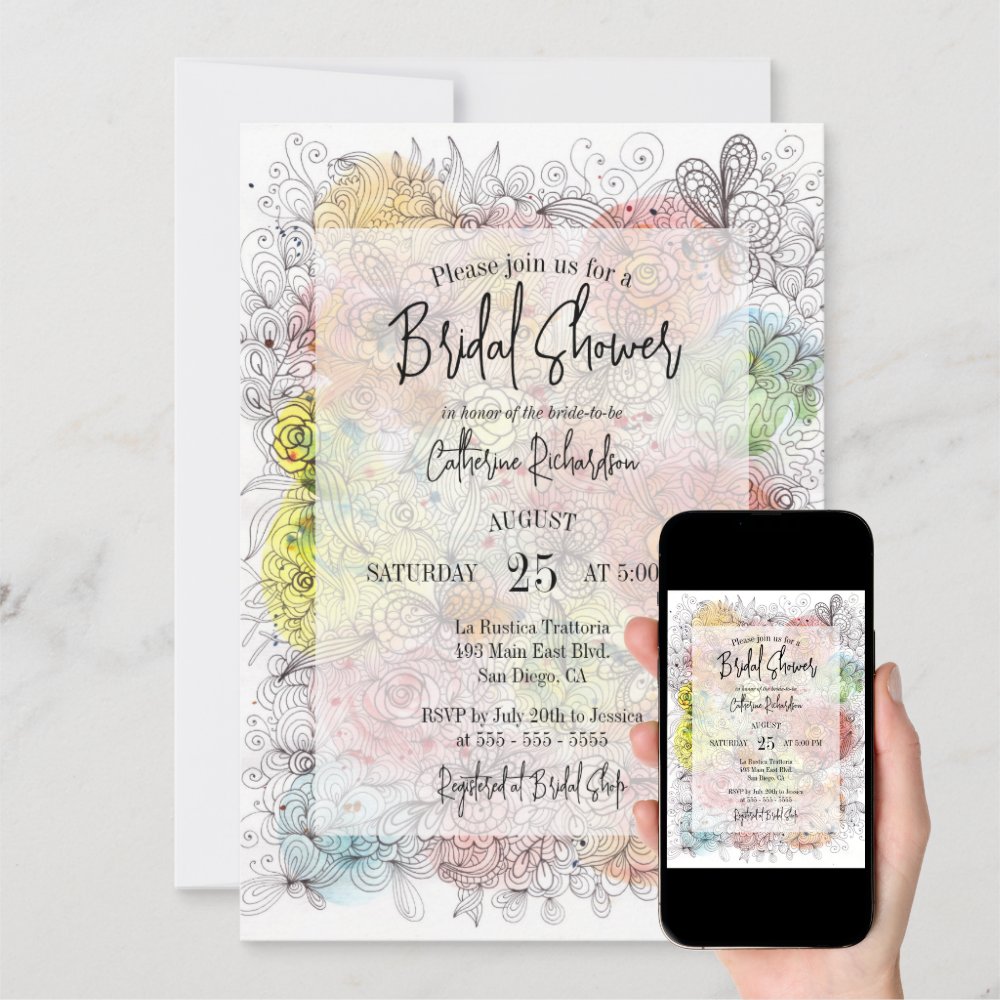 Please join us for a
Bridal Shower
in honor of the bride-to-be
Catherine Richardson
AUGUST
SATURDAY 25 AT 5:00
La Rustica Trattoria
493 Main East Blvd.
San Diego, CA
RSVP by July 20th to Jessica
at 555 - 555 - 5555
Registered at Bridal Shop
Please join us for a
Bridal Shower
in honor of the bride-to-be
Catherine Richardson
AUGUST
SATURDAY 25 AT 5:00 PM
La Rustica Trattoria
493 Main East Blvd.
San Diego, CA
RSVP by July 20th to Jessica
at 555 - 555 - 5555
Registered at Bridal Shop